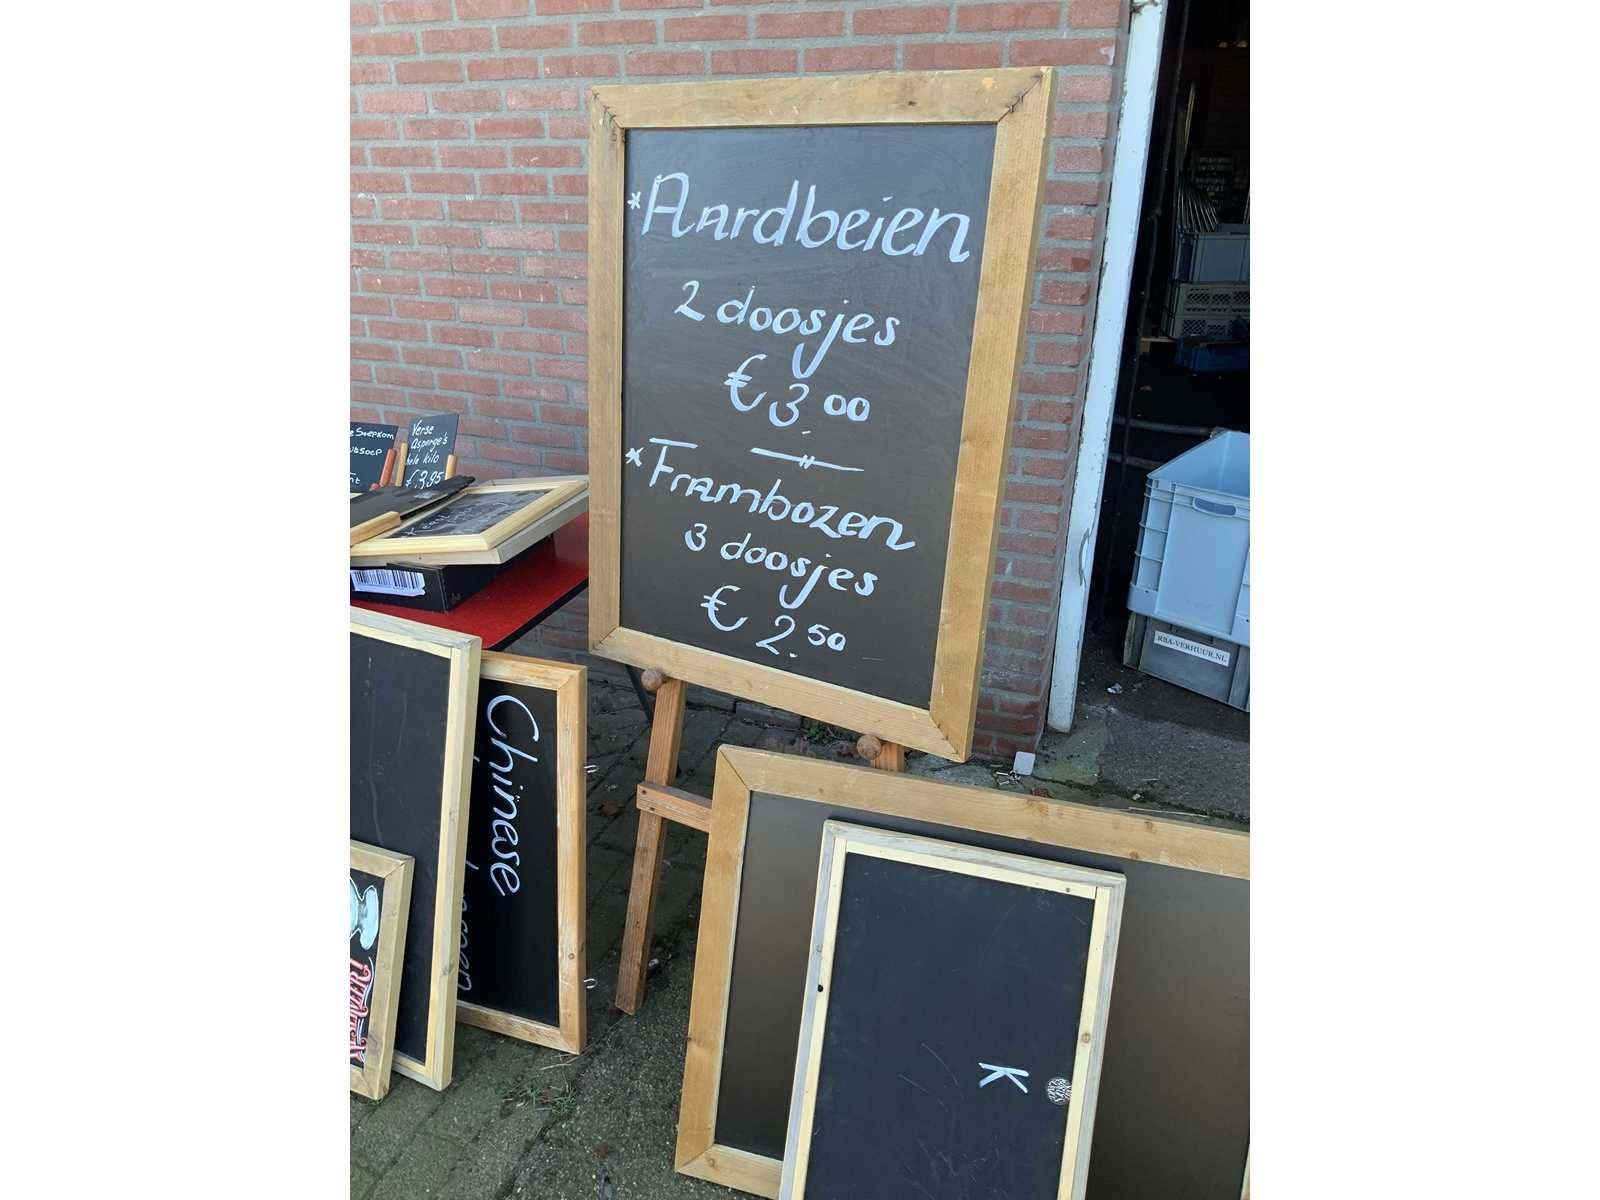 * Aardbeien
2 doosjes
€ 3.00
* Frambozen
3 doosjes
€ 2.50
Verse
asperge's
hele kilo
€ 3,95
Chinese
K
RBA-VERHUUR.NL